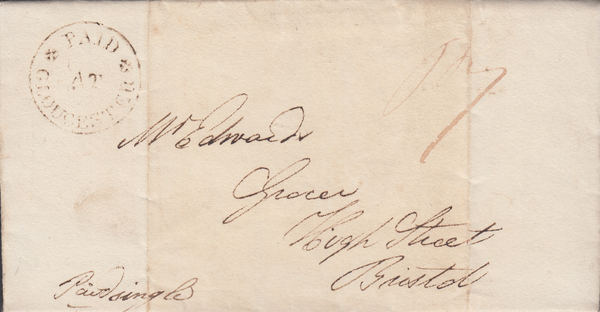 PAID
AT
GLOUCESTER
Mr Edwards
Grocer
High Street
Bristol
Paid single